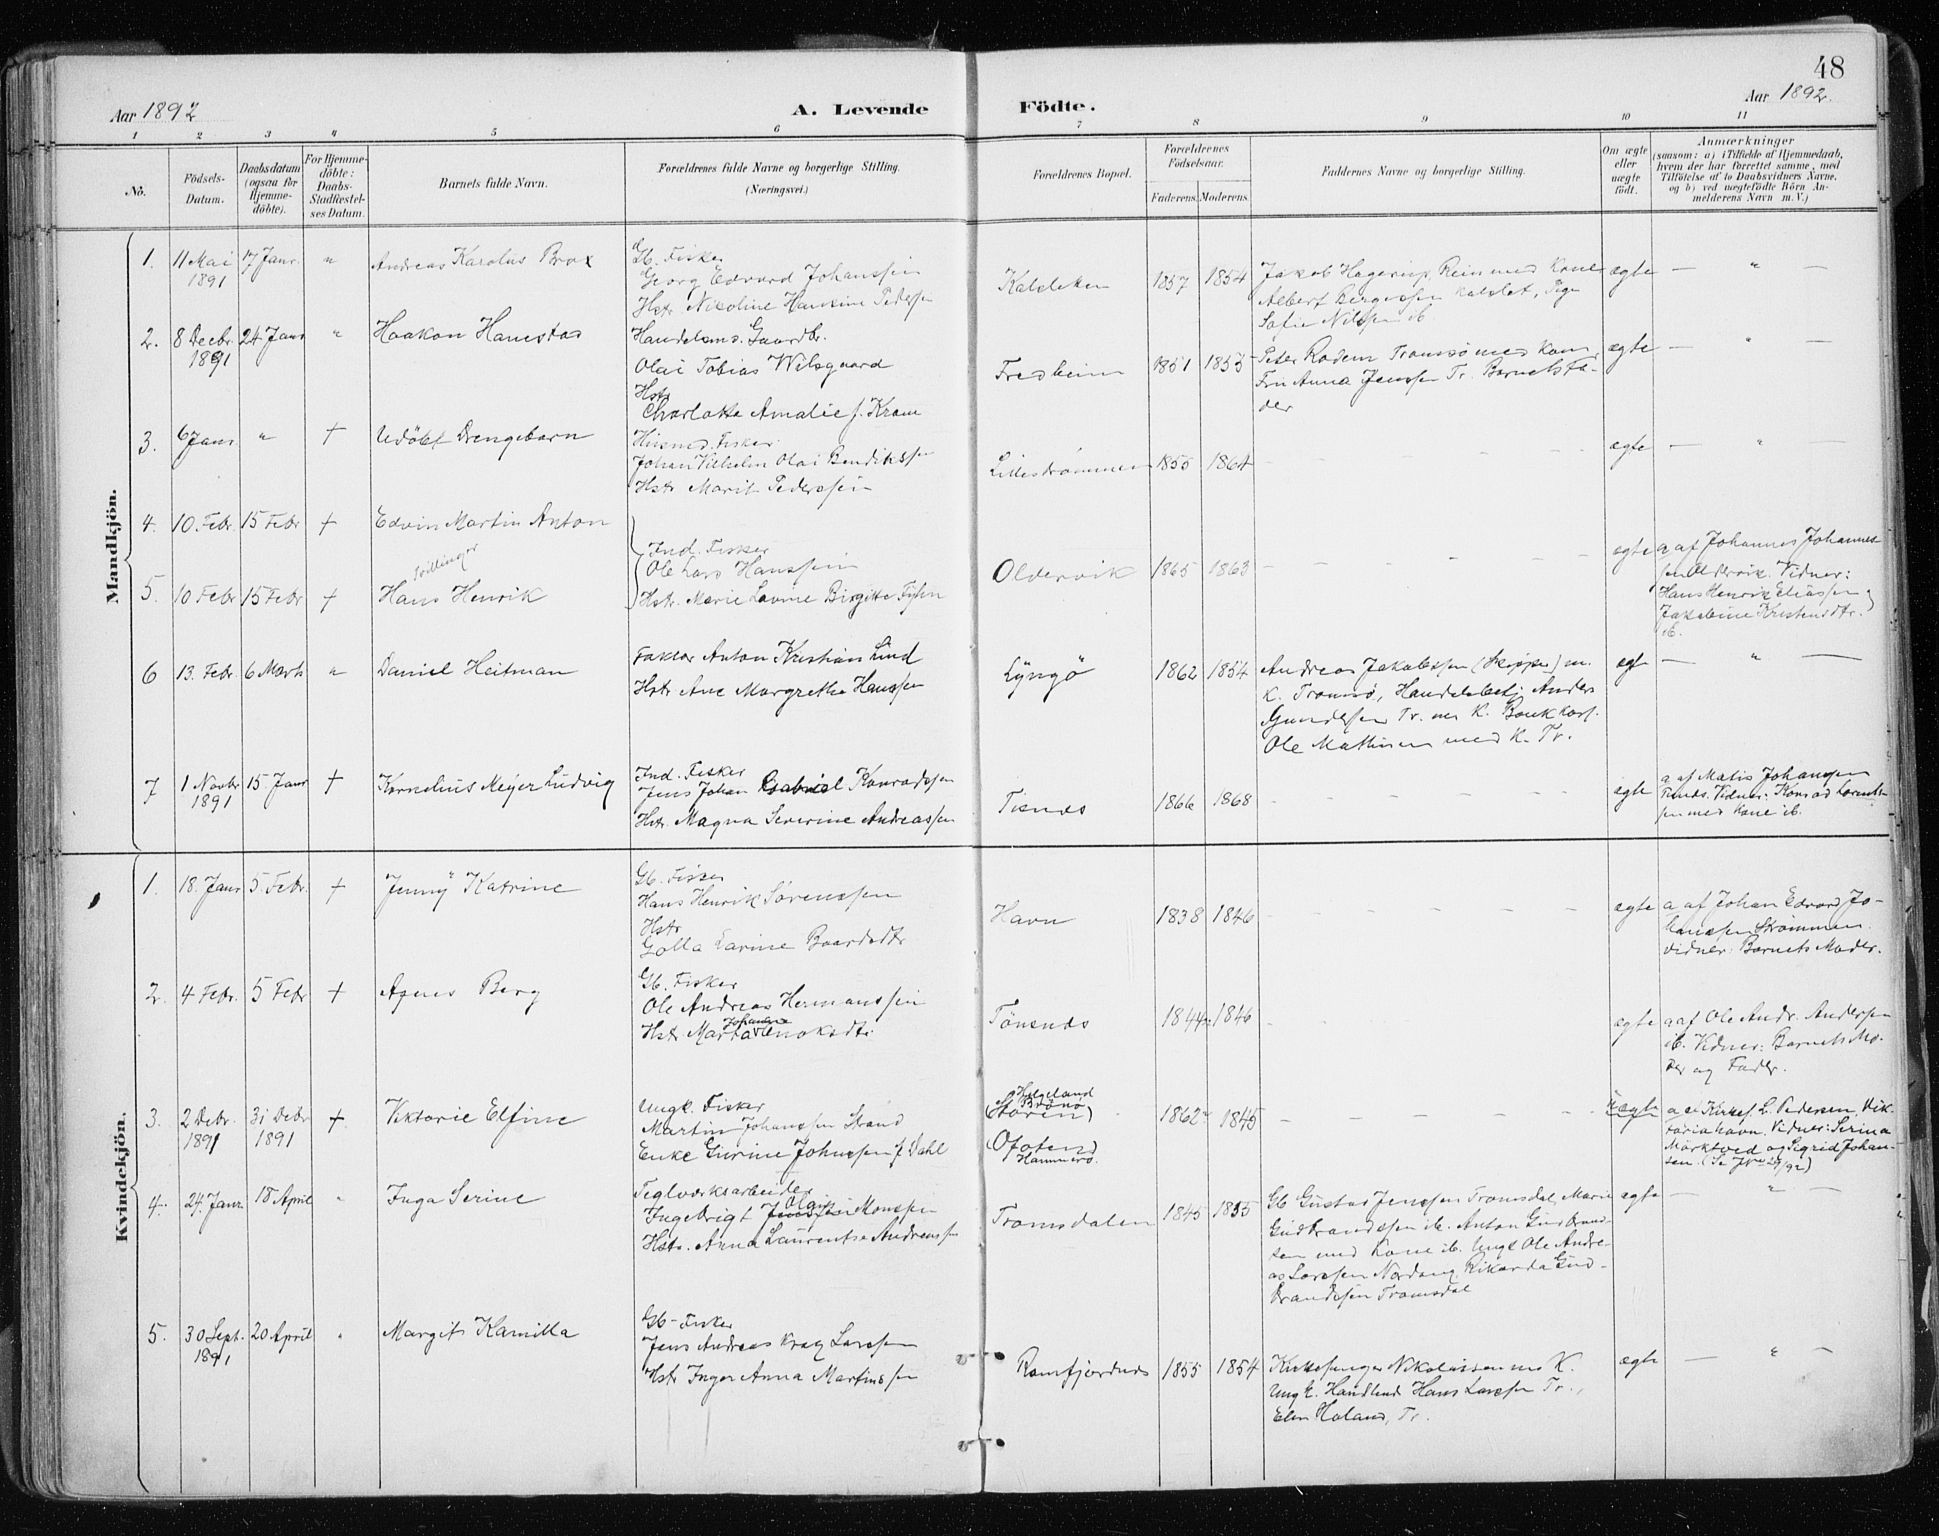 48
Aar 1892
A. Levende Födte.
Aar 1892.
1 2 3 4 5 6 7 8 9 10 11
No.
Födsels-
Datum.
Daabsdatum
(ogsaa for
Hjemme-
döbte).
For Hjemme-
döbte:
Daabs-
Stadfæstel-
ses Datum.
Barnets fulde Navn.
Forældrenes fulde Navne og borgerlige Stilling.
(Næringsvei.)
Forældrenes Bopæl.
Forældrenes
Födselsaar.
Faderens. Moderens.
Faddernes Navne og borgerlige Stilling.
Om ægte
eller
uægte
födt.
Anmærkninger
(saasom: a) i Tilfælde af Hjemmedaab,
hvem der har forrettet samme, med
Tilföielse af to Daabsvidners Navne,
og b) ved uægtefödte Börn An-
melderens Navn m. V.)
Mandkjön.
1. 11 Mai 17 Janr. " Andreas Karolus Brox
1891
Gb. Fisker
Georg Edvard Johanssen
Hstr Nicoline Hansine Pedersen
Kaldsken 1857 1854
Jakob Hagerup Rein med Kone
Albert Birgessen Kalslet, Pige
Sofie Nilsen ib.
ægte — " —
2. 8 Decbr 24 Janr " Haakon Hanestos
1891
Handelsms. Gaardbr.
Olai Tobias Wilsgaard
Hstr
Charlotte Amalie f. Krane
Fredheim 1851 1853
Peter Rodem Tromsø med Kone
Fru Anna Jenssen Tr. Barnets Fa-
der
ægte — " —
3. 6 Janr " † Udöbt Drengebarn
Husmd. Fisker
Johan Vilhelm Olai Bendikssen
Hstr Marit Pederssen
Lillestrømmen 1855 1864 ægte — " —
4. 10. Febr. 15 Febr † Edvin Martin Anton
tvillinger
5. 10 Febr 15 Febr † Hans Henrik
Ind. Fisker
Ole Lars Hanssen
Hstr. Marie Lovine Birgitte Fyhn
Oldervik 1865 1863 ægte
a af Johannes Johannes-
sen Oldervik. Vidner:
Hans Henrik Eliassen og
Jakobine Kristensdtr.
ib.
6 13. Febr. 6 Marts " Daniel Heitman
Faktor Anton Kristian Lind
Hstr Ane Margrethe Hanssen
Lyngö 1862 1854
Andreas Jakobssen (Skipper) m.
K. Tromsö, Handelsbetj. Anders
Gundersen Tr. med K. Bankkass.
Ole Mathisen med K. Tr.
ægte — " —
7 1 Novbr 15 Janr † Kornelius Meyer Ludvig
1891
Ind. Fisker
Jens Johan Gabriel Konradssen
Hstr. Magna Severine Andreassen
Tisnes 1866 1868 ægte
a af Matis Johansen
Tisnes. Vidner: Konrad Lorents-
sen med Kone ib.
Kvindekjön.
1. 18. Janr 5. Febr. † Jenny Katrine
Gb. Fisker
Hans Henrik Sørenssen
Hstr
Golla Larine Baardsdtr
Havn 1838 1846 ægte
a af Johan Edvard Jo-
hanssen Strømmen
vidner: Barnets Moder.
2. 4 Febr. 5 Febr † Agnes Berg
Gb. Fisker
Ole Andreas Hermanssen
Johanna
Hstr Marta Enoksdtr
Tønsnes 1844 1846 ægte
a af Ole Andr. Andersen
ib. Vidner: Barnets Mo-
der og Fader.
3. 2 Decbr. 31 Decbr † Viktorie Elfine
1891 1891
Ungk. Fisker
Martin Johanssen Strand
Enke Gurine Johnssen f. Dahl
Helgeland
Brönö
(Støren)
Ofoten
Hammerö.
1862 1845 uægte
a af Kirkes. L. Pedersen Vik-
toriahavn. Vidner: Serina
Marktved og Sigrid Johan-
sen.
4. 24. Janr. 18 April " Inga Serine
Teglværksarbeider
Olai
Ingebrigt Monssen
Hstr. Anna Laurentse Andreassen
Tromsdalen 1845 1855
Gb Gustav Jenssen Tromsdal, Marie
Gudbrandssen ib. Anton Gudbrand-
sen med Kone ib. Ungk Ole Andre-
as Larssen Nordang, Rikarda Gud-
brandssen Tromsdal
ægte — " —
5. 30 Sept. 20 April " Margit Kamilla
1891
Gb. Fisker
Jens Andreas Krag Larssen
Hstr Inger Anna Martinssen
Ramfjordnes 1855 1854
Kirkesanger Nikolaissen med K.
Ungk. Handlend Hans Larssen Tr.,
Elen Holand, Tr.
ægte — " —